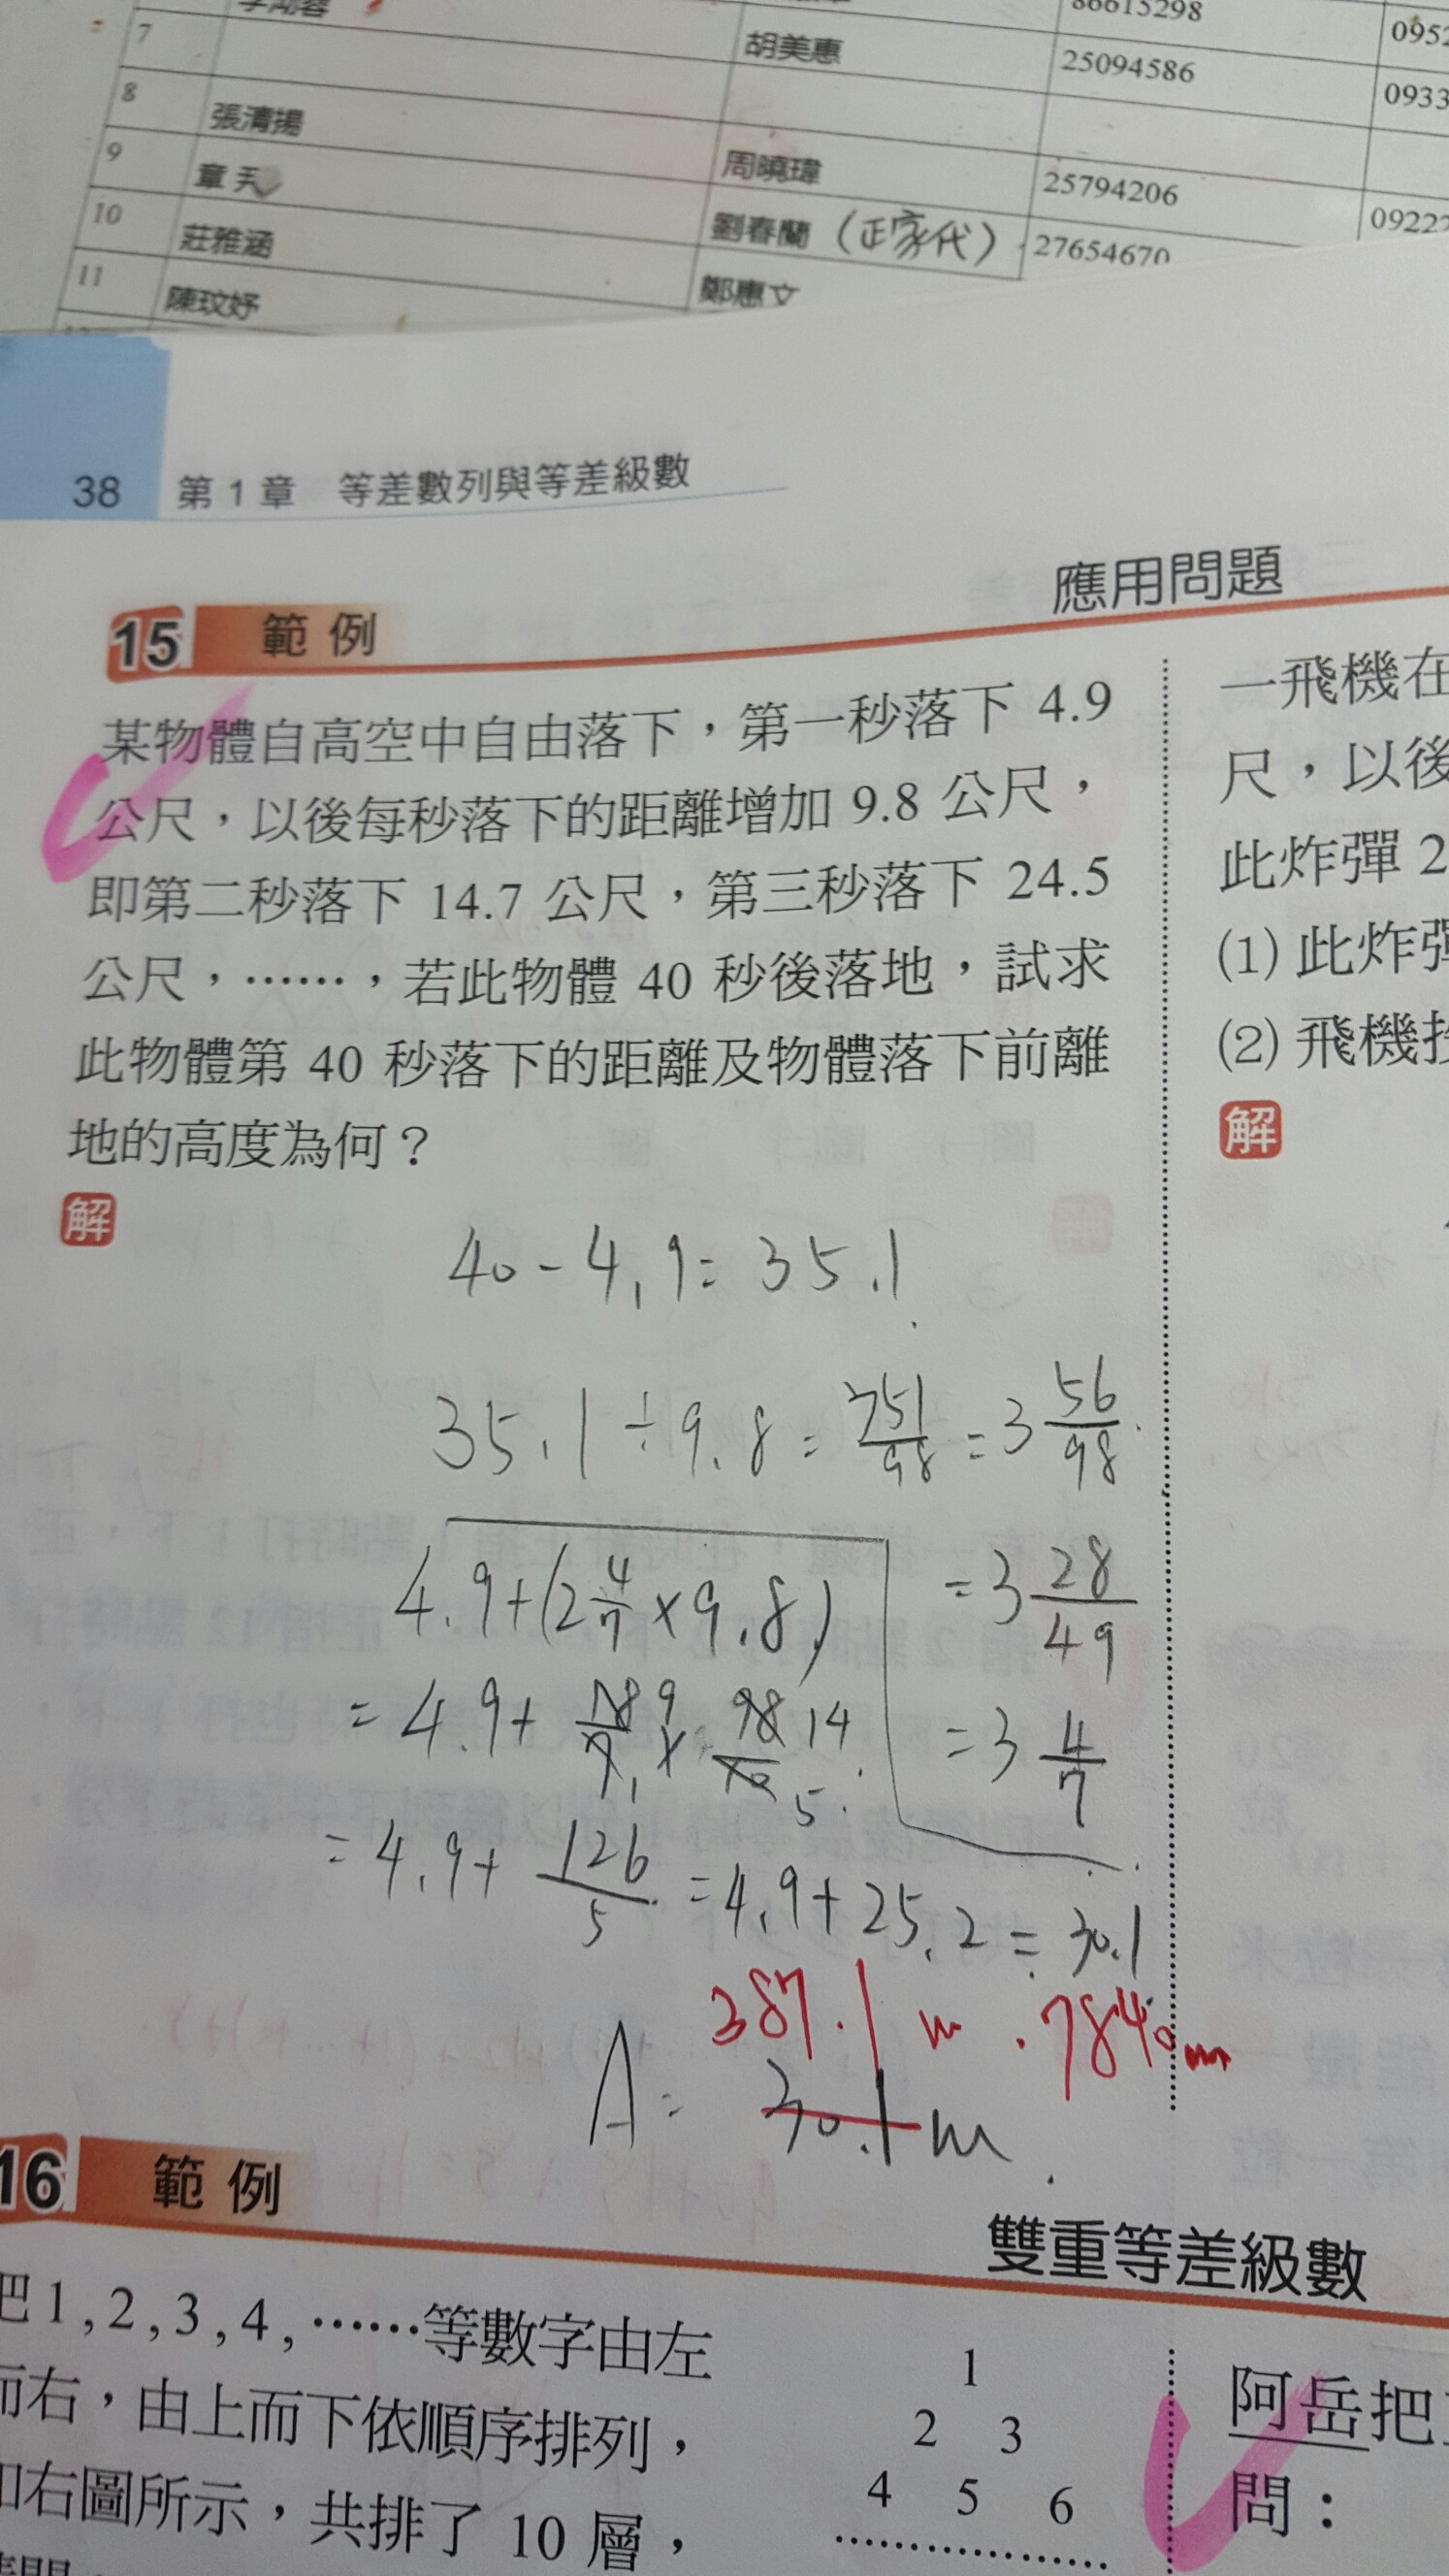 7 胡美惠 25094586 0933
8 張清揚
9 章 周曉瑋 25794206
10 莊雅涵 劉春蘭（正家代） 27654670 0922
11 陳玟妤 鄭惠文
38 第1章 等差數列與等差級數
應用問題
15 範例
某物體自高空中自由落下，第一秒落下 4.9
公尺，以後每秒落下的距離增加 9.8 公尺，
即第二秒落下 14.7 公尺，第三秒落下 24.5
公尺，……，若此物體 40 秒後落地，試求
此物體第 40 秒落下的距離及物體落下前離
地的高度為何？
解
40-4.9=35.1
35.1÷9.8=351/98=3 56/98
=3 28/49
=3 4/7
4.9+(2 4/7×9.8)
=4.9+18/7×98/10
9 14
1 5
=4.9+126/5=4.9+25.2=30.1
387.1m.7840m
A=30.1m.
一飛機在
尺，以後
此炸彈 2
(1) 此炸彈
(2) 飛機投
解
16 範例
雙重等差級數
把1,2,3,4,……等數字由左
而右，由上而下依順序排列，
如右圖所示，共排了 10 層，
1
2 3
4 5 6
………………
阿岳把
問：